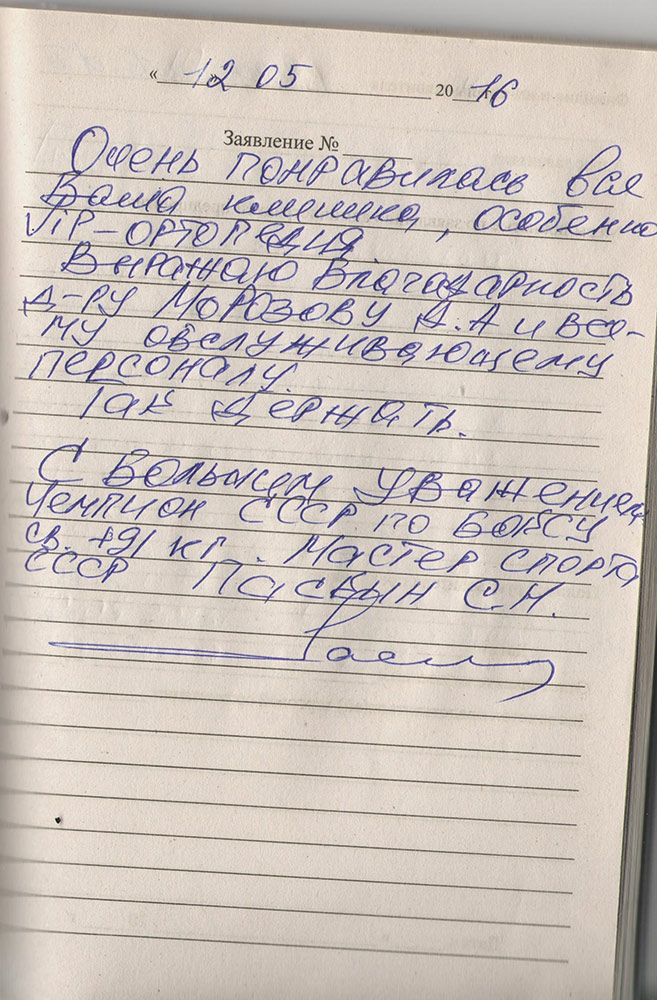 « 12 05 2016
Заявление №
Очень понравилась вся
Ваша клиника, особенно
VIP-ортопедия.
Выражаю Благодарность
д-ру Морозову А.А и все-
му обслуживающему
персоналу.
Так держать.
С Большим уважением
Чемпион СССР по боксу
св. +91 кг. Мастер спорта
СССР С.Н.